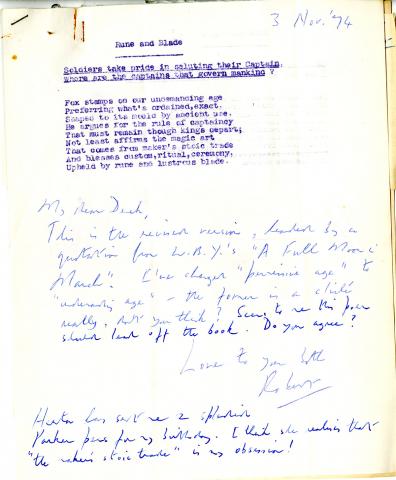 3 Nov. '74
Rune and Blade
Soldiers take pride in saluting their Captain.
Where are the captains that govern mankind ?
Fox stamps on our undemanding age
Preferring what's ordained, exact.
Shaped to its mould by ancient use.
He argues for the rule of captaincy
That must remain though kings depart;
Not least affirms the magic art
That comes from maker's stoic trade
And blesses custom, ritual, ceremony,
Upheld by rune and lustrous blade.
My dear
This is the revised version, headed by a
quotation from W.B.Y.'s "A Full Moon in
March". I've changed "permissive age" to
"undemanding age" - the former is a cliché
really, don't you think? Seems to me this poem
should lead off the book. Do you agree?
Love to you both
Robert
has sent me 2 splendid
Parker pens for my birthday. I think she realises that
"the maker's stoic trade" is my obsession!